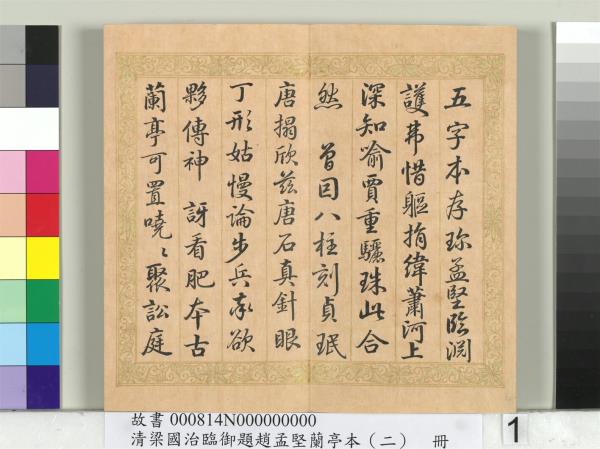 五字本存珎孟堅臨淵
護弗惜軀捐緯蕭河上
深知喻賈重驪珠此合
然 曽因八柱刻貞珉
唐搨欣兹唐石真針眼
丁形姑慢論步兵奉欲
夥傳神 訝看肥本古
蘭亭可置嘵〻聚訟庭
故書 000814N000000000
清梁國治臨御題趙孟堅蘭亭本（二） 冊
1